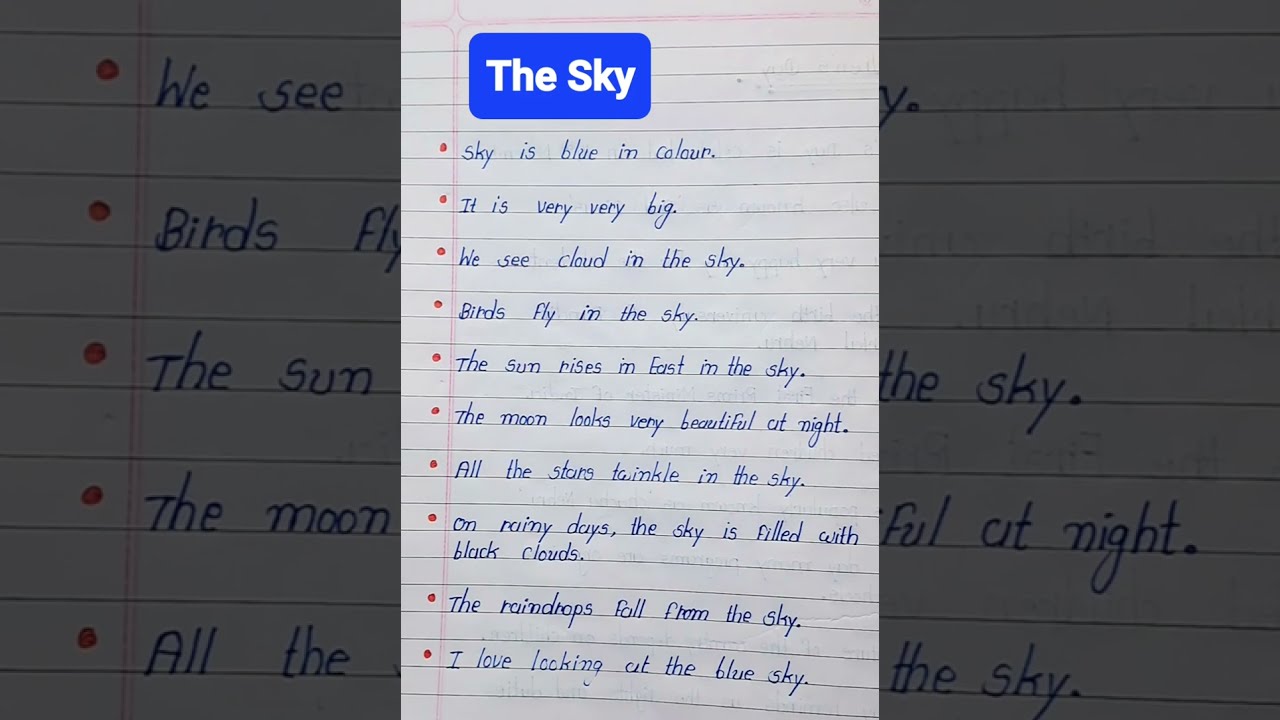 The Sky
• Sky is blue in colour.
• It is very very big.
• We see cloud in the sky.
• Birds fly in the sky.
• The sun rises in East in the sky.
• The moon looks very beautiful at night.
• All the stars twinkle in the sky.
• On rainy days, the sky is filled with
black clouds.
• The raindrops fall from the sky.
• I love looking at the blue sky.
• We see
• Birds fly
• The sun
the sky.
• The moon
ful at night.
• All the
the sky.